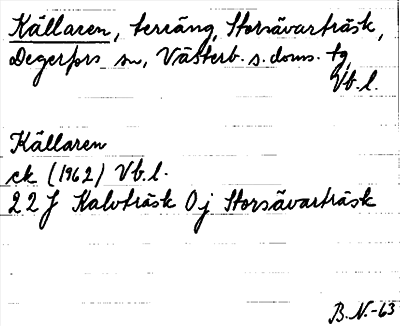 Källaren, terräng, Storsävarträsk,
Degerfors sn, Västerb. s. doms. tg,
Vb. l.
Källaren
ek (1962) Vb. l.
22 J Kalvträsk 0 j Storsävarträsk
B. N. -63